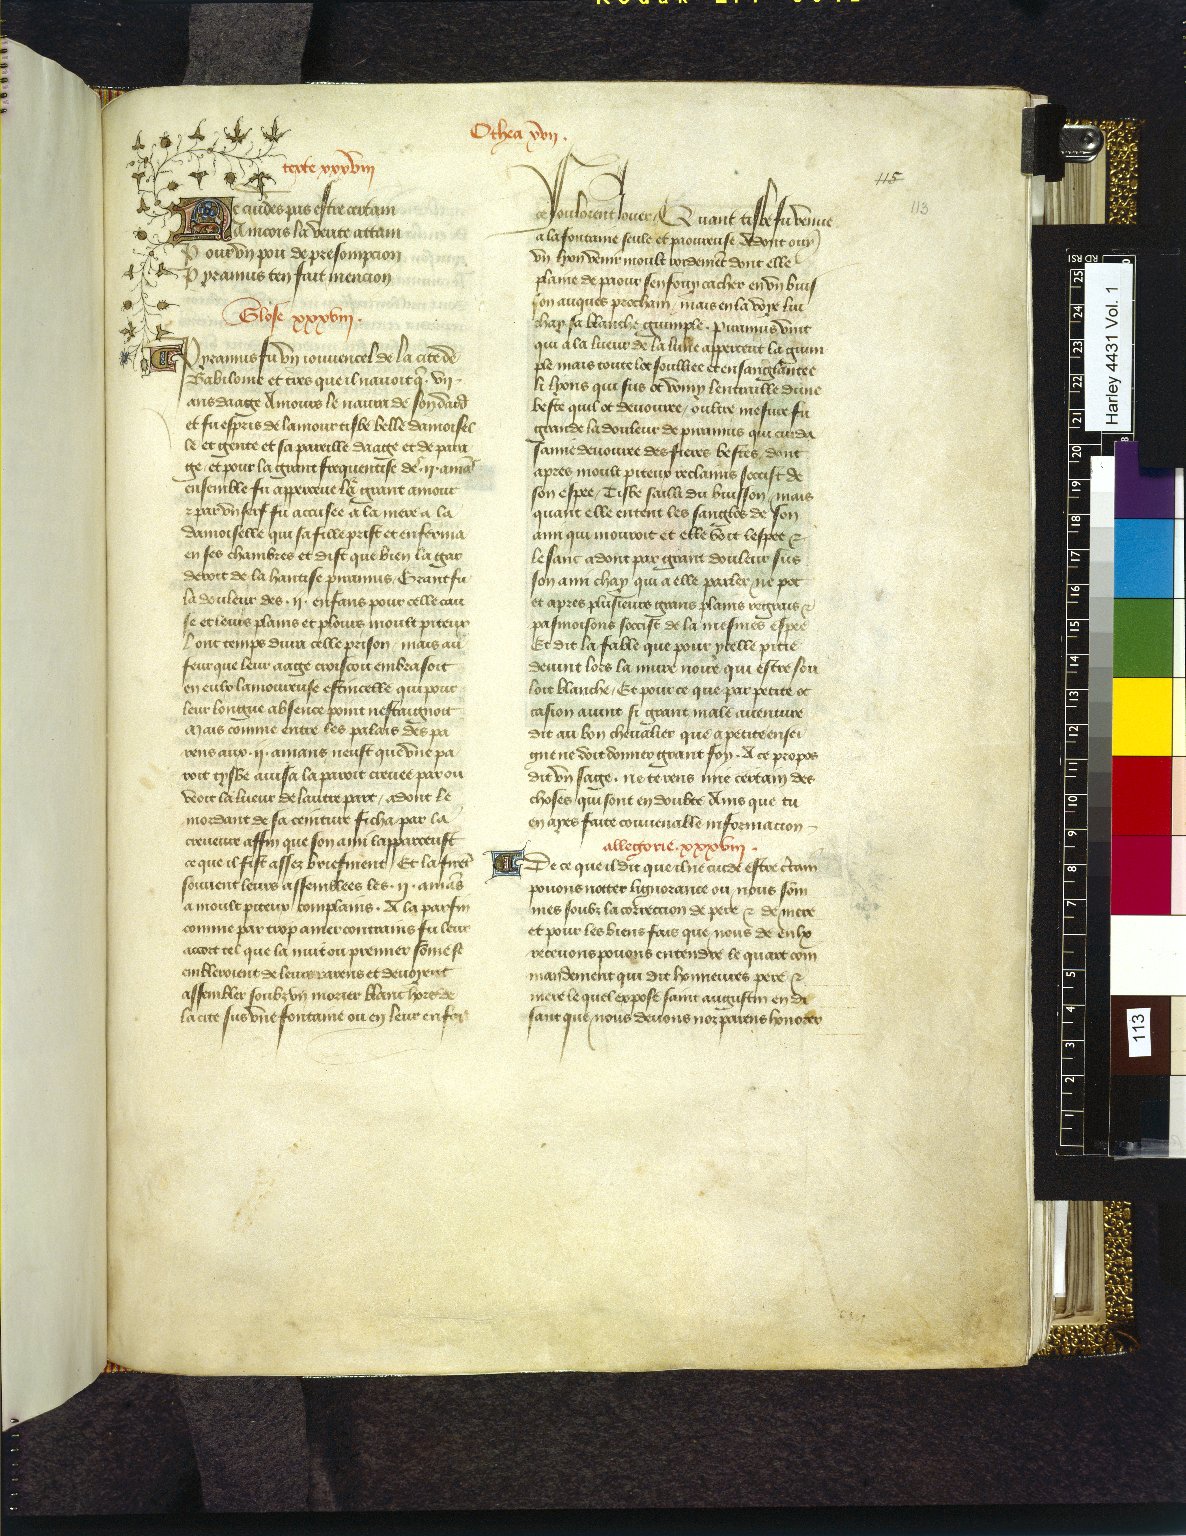 Othea xvii.
115
113
texte xxxviii
Ne cuides pas estre certain
Aincois la verite attain
Pour vn pou de presompcion
Pyramus ten fait mencion
Glose xxxviii.
Pyramus fu vn iouuencel de la cite de
Babiloine et tres que il nauoit q̄ .vii.
ans daage Amours le naura de son dard
et fu espris de lamour tisbe belle damoisel
le et gente et sa pareille daage et de para
ge / et pour la grant frequentise des .ii. amās
ensemble fu apperceue leur grant amour
⁊ par vn serf fu accusee a la mere a la
damoiselle qui sa fille prist et enferma
en ses chambres et dist que bien la gar
deroit de la hantise piramus / Grant fu
la douleur des .ii. enfans pour celle cau
se et leurs plains et plours moult piteux
Lont temps dura celle prison / mais au
feur que leur aage croiscoit embrasoit
en eulx lamoureuse estincelle qui pour
leur longue absence point nestaignoit
Mais comme entre les palais des pa
rens aux .ii. amans neust que vne pa
roit tysbe auisa la paroit creuee par ou
veoit la lueur de lautre part / adont le
mordant de sa ceinture ficha par la
creueure affin que son ami lapparceust
ce que il fist assez briefment / Et la firēt
souuent leurs assemblees les .ii. amās
a moult piteux complains. A la parfin
comme par trop amer contrains fu leur
accort tel que la nuit ou premier sōme se
embleroient de leurs parens et deuoyent
assembler soubz vn morier blanc hors de
la cite sus vne fontaine ou en leur enfan
ce souloient iouer / Quant tisbe fu venue
a la fontaine seule et paoureuse adont ouy
vn lyon venir moult roidemēt dont elle
plaine de paour senfouy cacher en vn buis
son auques prochain / mais en la voye lui
chay sa blanche guimple. Piramus vint
qui a la lueur de la lune apperceut la guim
ple mais toute lot soulliee et ensanglantee
li lyons qui sus ot vomy lentraille dune
beste quil ot deuouree / oultre mesure fu
grande la douleur de piramus qui cuida
samie deuouree des fieres bestes, dont
apres moult piteux reclaims soccist de
son espee / Tisbe sailli du buisson / mais
quant elle entent les sanglos de son
ami qui mouroit et elle voit lespee ⁊
le sanc adont par grant douleur sus
son ami chay qui a elle parler ne pot
et apres plusieurs grans plains regrais ⁊
pasmoisons soccist de la mesmes espee
Et dit la fable que pour ycelle pitie
deuint lors la mure noire qui estre sou
loit blanche / Et pour ce que par petite oc
casion auint si grant male auenture
dit au bon cheualier que a petite ensei
gne ne doit donner grant foy. A ce propos
dit vn sage. ne te rens mie certain des
choses qui sont en doubte Ains que tu
en ayes faite couuenable informacion
allegorie. xxxviii.
De ce que il dit que il ne cuide estre c̄tain
pouons notter lignorance ou nous som̄
mes soubz la correction de pere ⁊ de mere
et pour les biens fais que nous de eulx
receuons pouons entendre le quart com
mandement qui dit honneures pere ⁊
mere le quel expose saint augustin en di
sant que nous deuons noz parens honorer
Harley 4431 Vol. 1
113